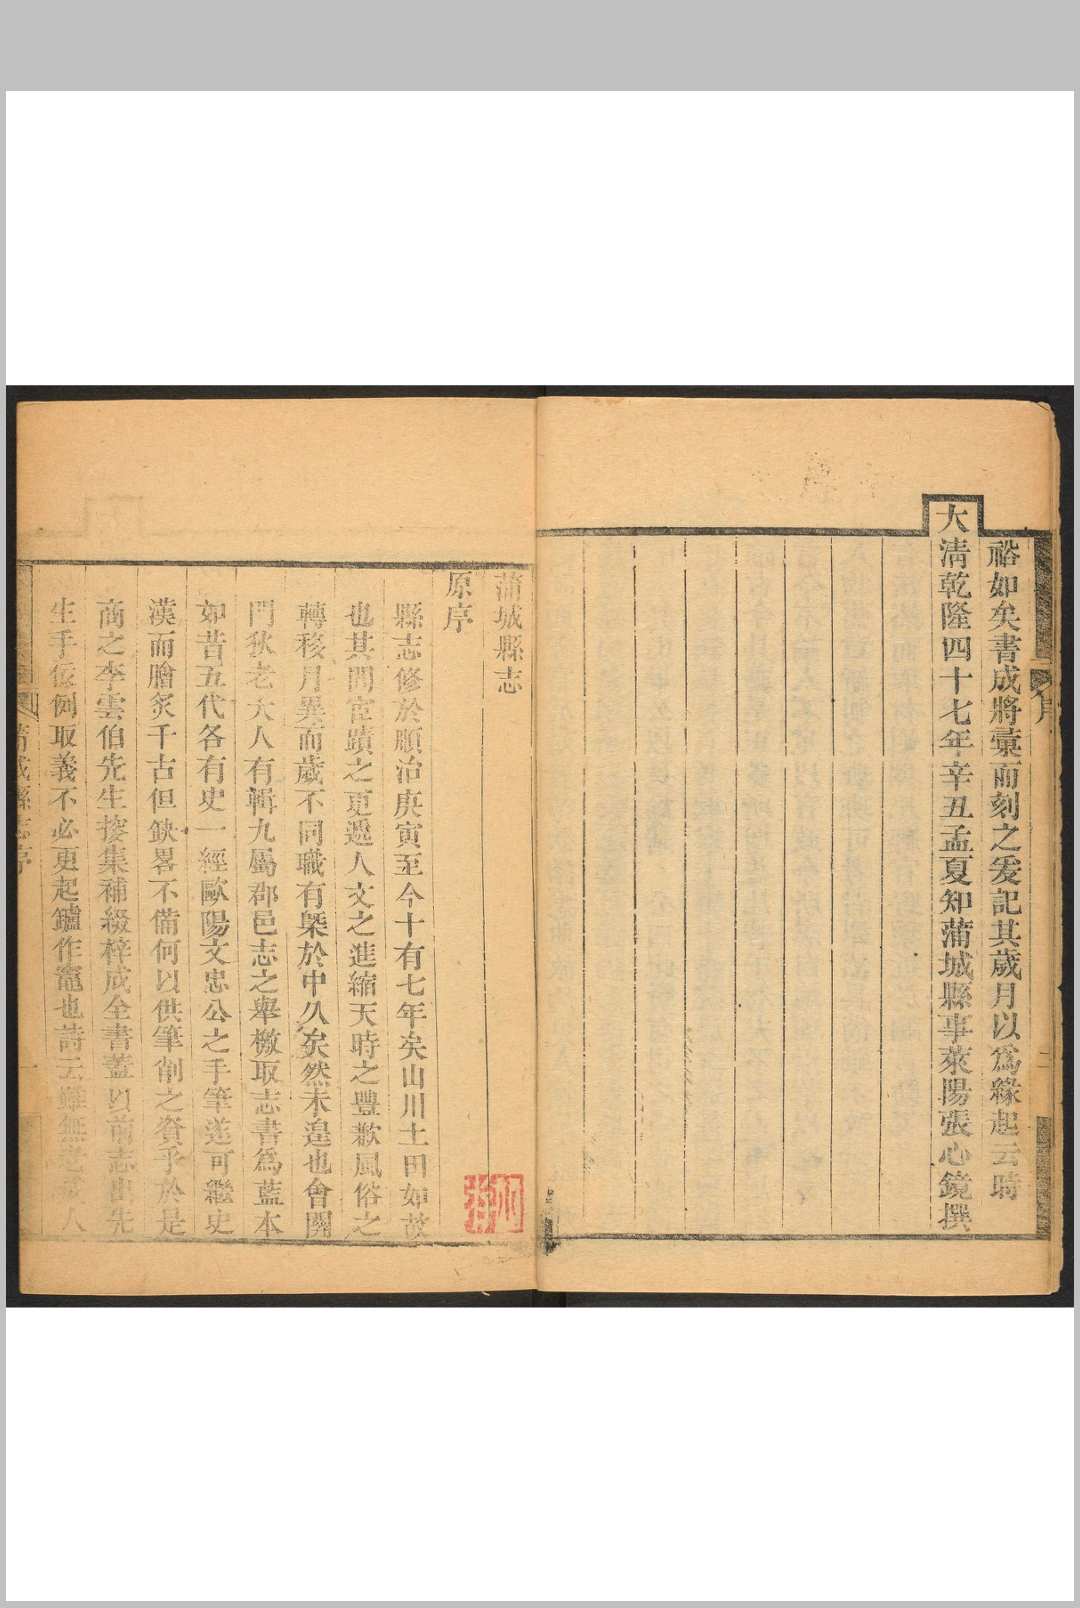 裕如矣書成將彙而刻之爰記其歲月以為緣起云時
大清乾隆四十七年辛丑孟夏知蒲城縣事萊陽張心鏡撰
序
二
蒲城縣志
原序
縣志修於順治庚寅至今十有七年矣山川土田如故
也其間宦蹟之更遞人文之進縮天時之豐歉風俗之
轉移月異而歲不同職有槩於中久矣然未遑也會關
門狄老大人有輯九屬郡邑志之舉檄取志書為藍本
如昔五代各有史一經歐陽文忠公之手筆遂可繼史
漢而膾炙千古但缺畧不備何以供筆削之資乎於是
商之李雲伯先生搜集補綴梓成全書蓋以前志出先
生手依例取義不必更起鑪作竈也詩云雖無老成人
蒲城縣志序
一